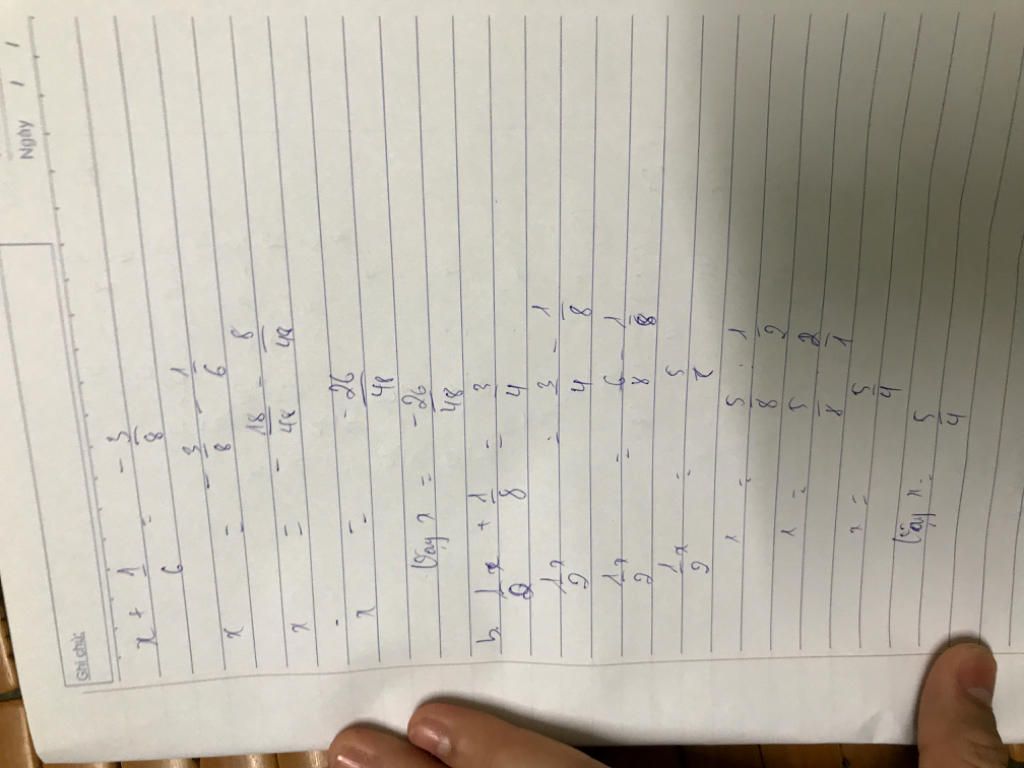 Ngày 1 1
Ghi chú:
x + 1/6 = -3/8
x = -3/8 - 1/6
x = -18/48 - 8/48
x = -26/48
Vậy x = -26/48
b. 1/2 x + 1/8 = 3/4
1/2 x = 3/4 - 1/8
1/2 x = 6/8 - 1/8
1/2 x = 5/8
x = 5/8 : 1/2
x = 5/8 . 2/1
x = 5/4
Vậy x = 5/4